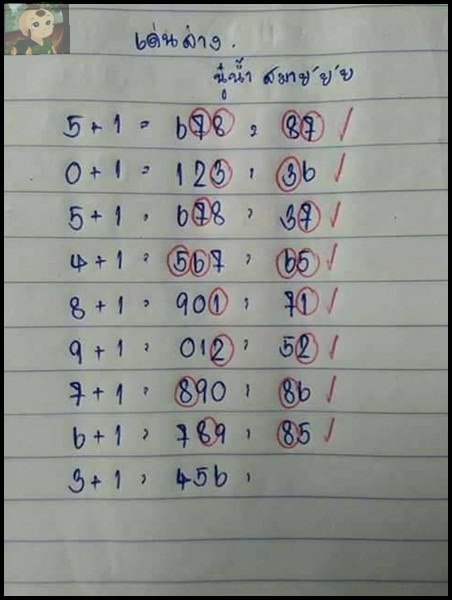 เด่นล่าง.
ปู่น้ำ สมาย ย ย
5+1 = 678 = 87 /
0+1 = 123 = 36 /
5+1 = 678 = 37 /
4+1 = 567 = 65 /
8+1 = 901 = 71 /
9+1 = 012 = 52 /
7+1 = 890 = 86 /
6+1 = 789 = 85 /
3+1 = 456 =